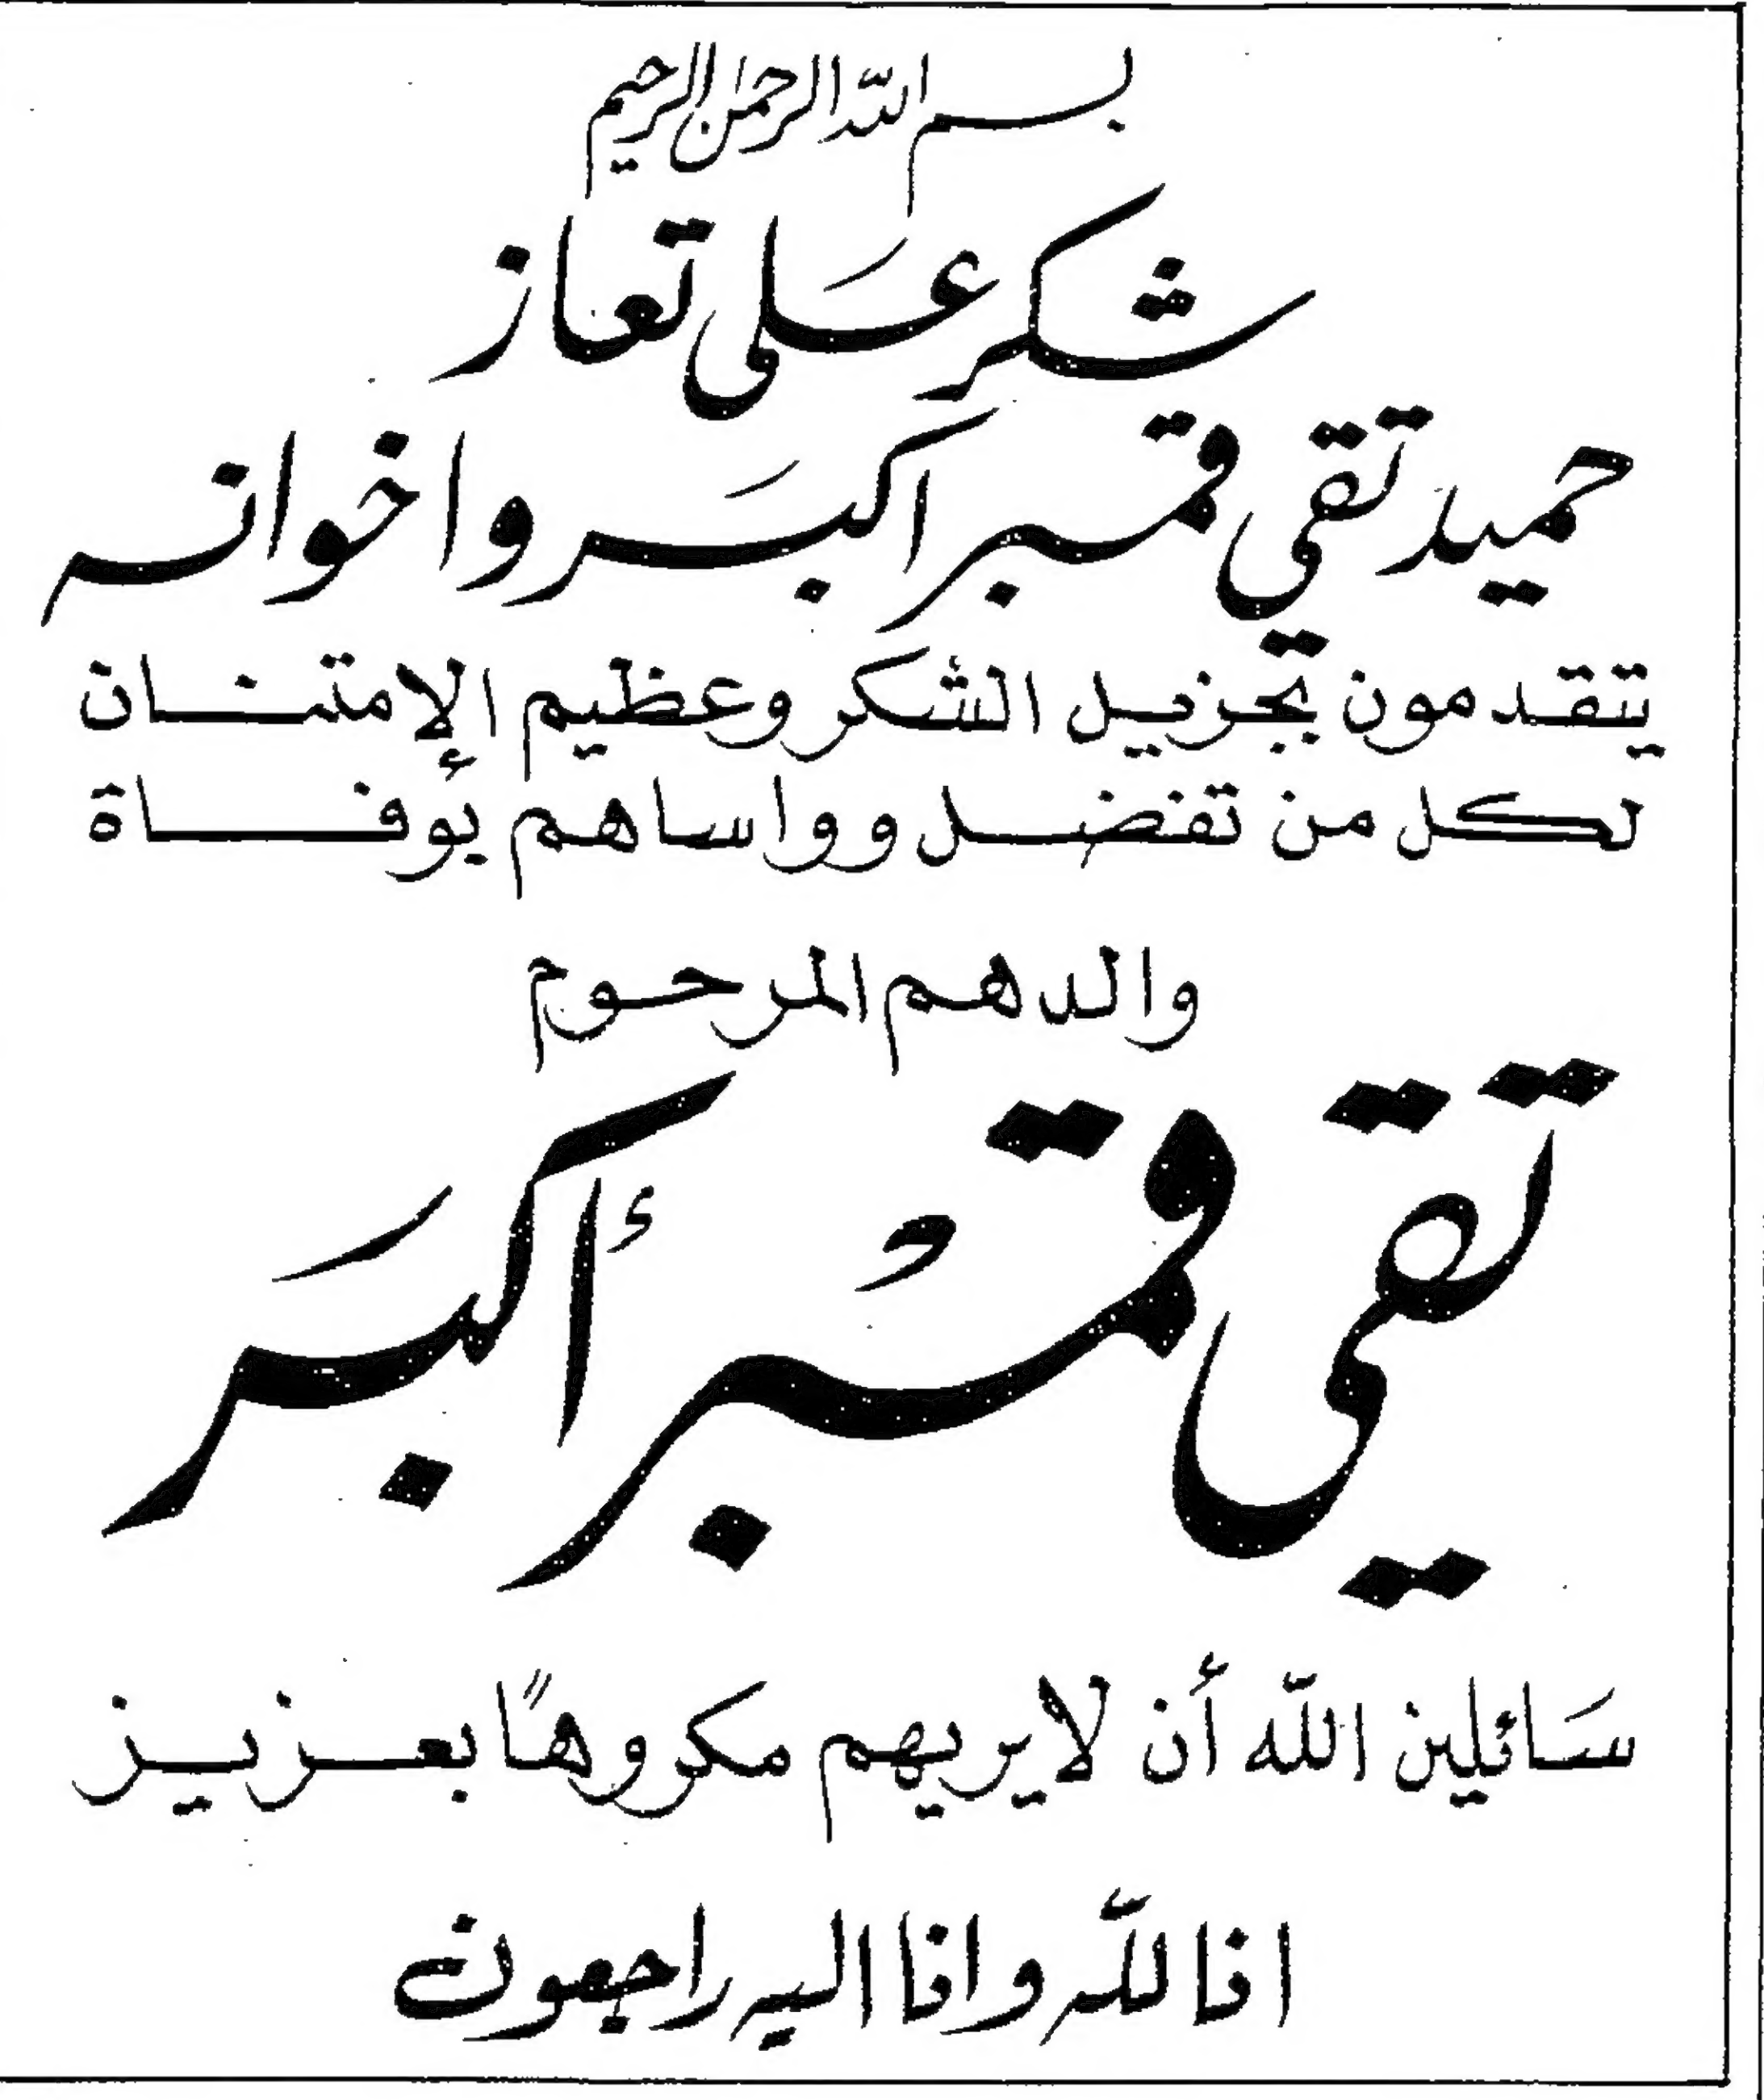 بسم الله الرحمن الرحيم
شكر على تعاز
حميد تقي قمبر اكبر واخوانه
يتقدمون بجزيل الشكر وعظيم الإمتنان
لكل من تفضل وواساهم بوفاة
والدهم المرحوم
تقي قمبر أكبر
سائلين الله أن لا يريهم مكروهًا بعزيز
انا لله وانا اليه راجعون